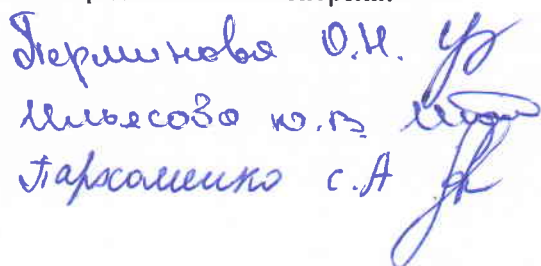 Перминова О.Н.
Ильясова Ю.В
Пархоменко С.А